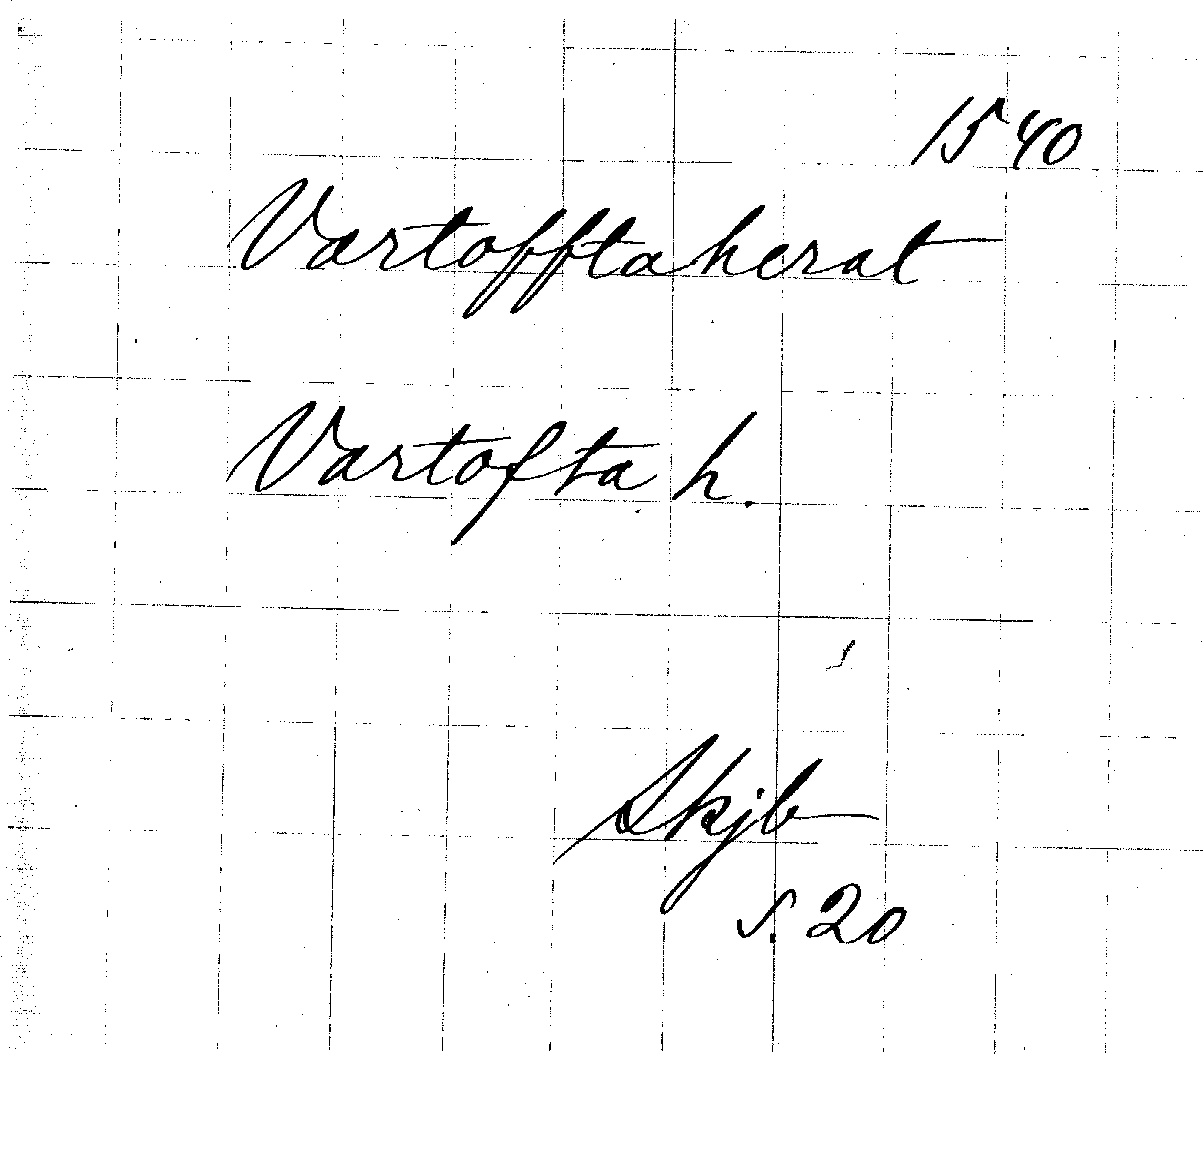 1540
Vartofftaherat
Vartofta h.
Skjb
s. 20